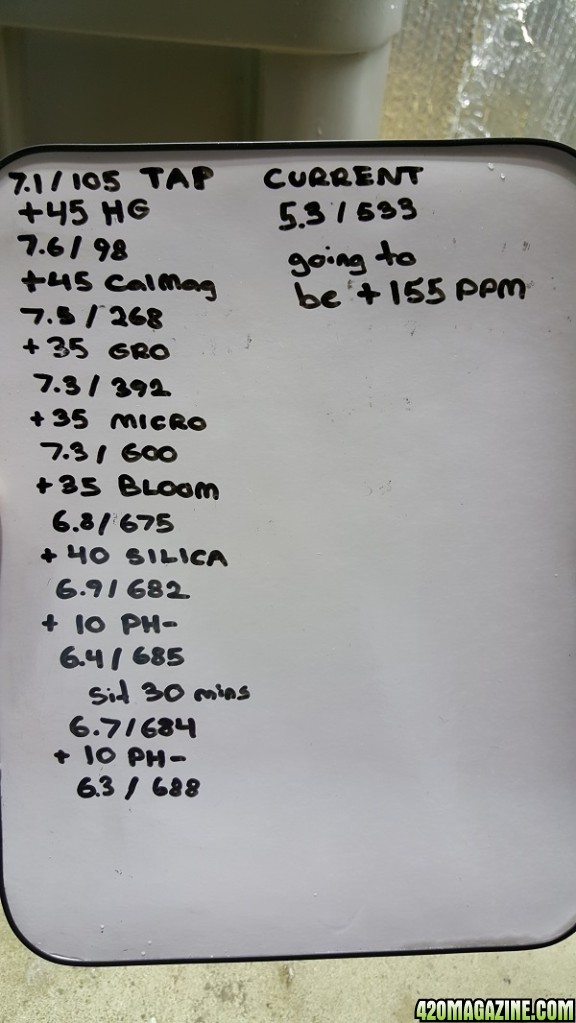 7.1/105 TAP
+45 HG
7.6/98
+45 CalMag
7.5/268
+35 GRO
7.3/392
+35 MICRO
7.3/600
+35 BLOOM
6.8/675
+40 SILICA
6.9/682
+ 10 PH-
6.4/685
Sit 30 mins
6.7/684
+ 10 PH-
6.3/688
CURRENT
5.3/533
going to
be +155 PPM
420MAGAZINE.COM